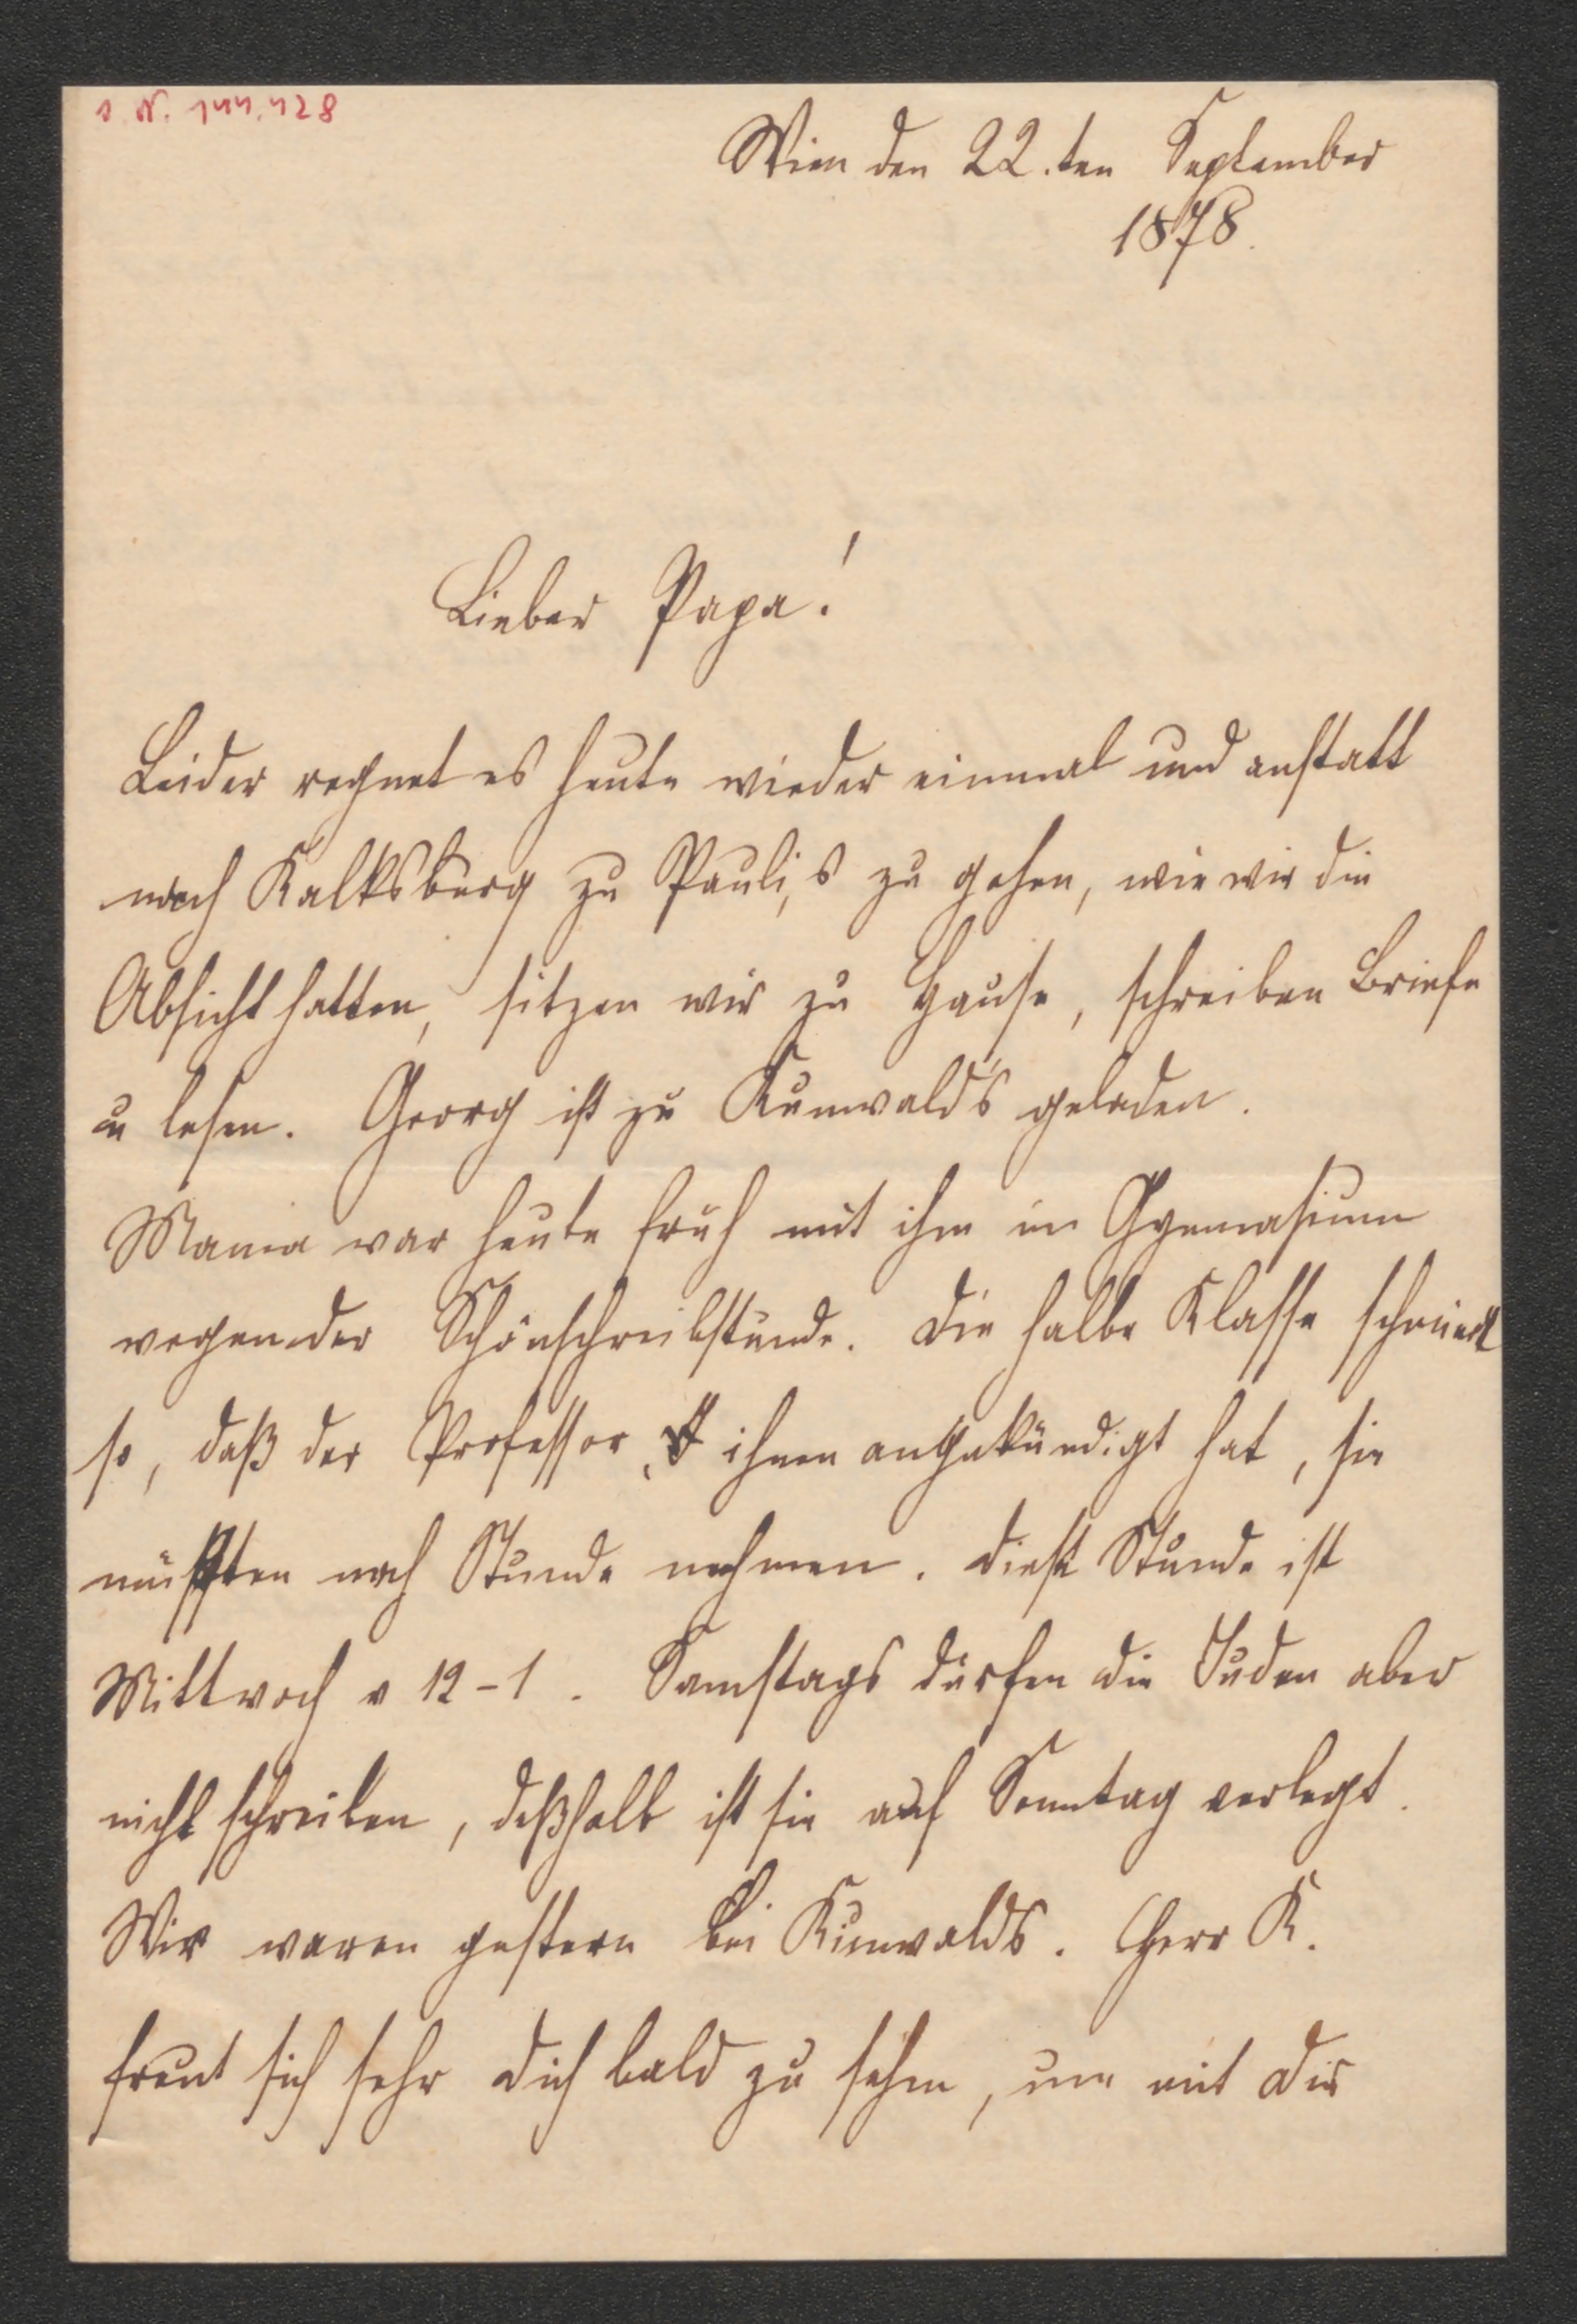 I. N. 144.428
Wien den 22.ten September
1878.
Lieber Papa!
Leider regnet es heute wieder einmal und anstatt
nach Kalksburg zu Pauli,s zu gehen, wie wir die
Absicht hatten, sitzen wir zu Hause, schreiben Briefe
u lesen. Georg ist zu Kunwald's geladen.
Mama war heute früh mit ihm im Gymnasium
wegen der Schönschreibstunde. Die halbe Klasse schmiert
so, daß der Professor, ihnen angekündigt hat, sie
müßten noch Stunde nehmen. Diese Stunde ist
Mittwoch v 12-1. Samstags dürfen die Juden aber
nicht schreiben, deßhalb ist sie auf Sonntag verlegt.
Wir waren gestern bei Kunwalds. Herr K.
freut sich sehr Dich bald zu sehen, um mit Dir